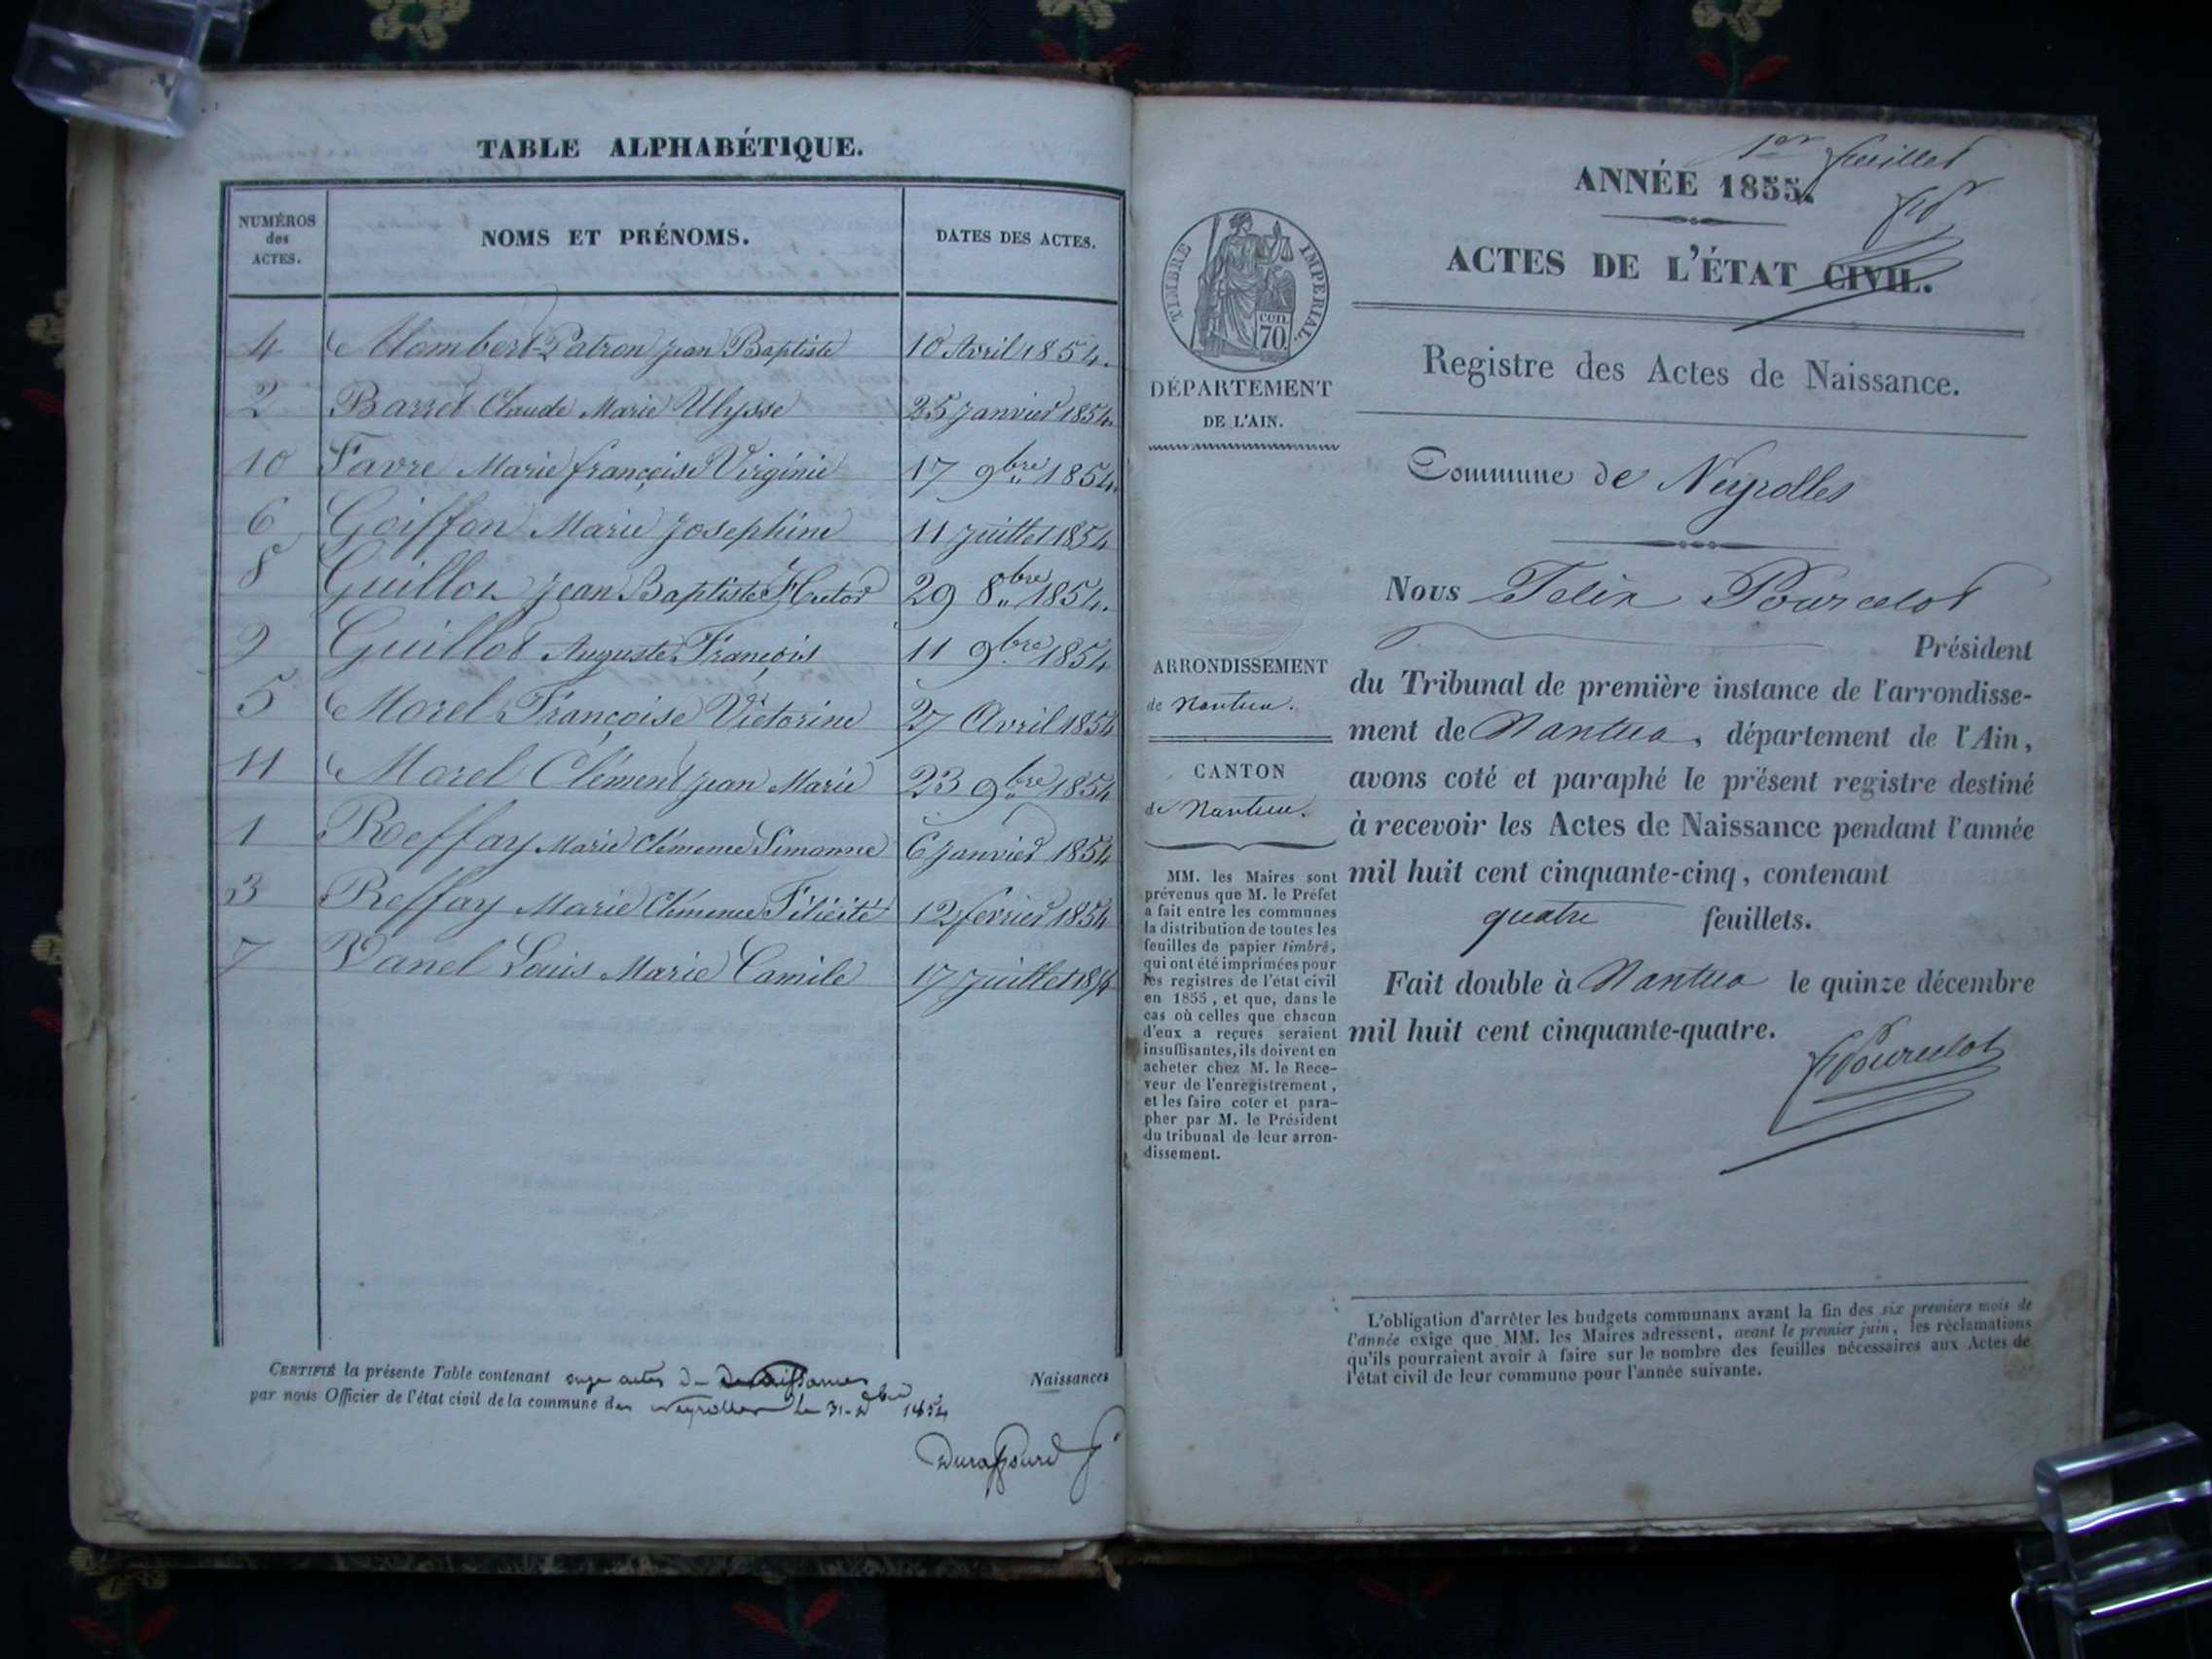 TABLE ALPHABÉTIQUE.
NUMÉROS
des
ACTES.
NOMS ET PRÉNOMS.
DATES DES ACTES.
4 Mombert-Patron Jean Baptiste 10 Avril 1854.
2 Barret Claude Marie Ulysse 25 Janvier 1854.
10 Favre Marie françoise Virginie 17 9bre 1854.
6 Goiffon Marie Josephine 11 Juillet 1854
8 Guillot Jean Baptiste 29 8bre 1854.
9 Guillot Auguste François 11 9bre 1854
5 Morel Françoise Victorine 27 Avril 1854
11 Morel Clément Jean Marie 23 9bre 1854
1 Reffay Marie Clémence Simonne 6 Janvier 1854
3 Reffay Marie Clémence Félicité 12 fevrier 1854
7 Vanel Louis Marie Camile 17 Juillet 1854
CERTIFIÉ la présente Table contenant onze actes de Naissances
par nous Officier de l'état civil de la commune des Neyrolles le 31 Xbre 1854
Durafourd
1er feuillet
ANNÉE 1855.
ACTES DE L'ÉTAT CIVIL.
Registre des Actes de Naissance.
Commune de Neyrolles
TIMBRE IMPERIAL.
cen.
70.
DÉPARTEMENT
DE L'AIN.
ARRONDISSEMENT
de Nantua.
CANTON
de Nantua.
MM. les Maires sont
prévenus que M. le Préfet
a fait entre les communes
la distribution de toutes les
feuilles de papier timbré,
qui ont été imprimées pour
les registres de l'état civil
en 1855, et que, dans le
cas où celles que chacun
d'eux a reçues seraient
insuffisantes, ils doivent en
acheter chez M. le Rece-
veur de l'enregistrement,
et les faire coter et para-
pher par M. le Président
du tribunal de leur arron-
dissement.
Nous Felix Pourcelot
Président
du Tribunal de première instance de l'arrondisse-
ment de Nantua, département de l'Ain,
avons coté et paraphé le présent registre destiné
à recevoir les Actes de Naissance pendant l'année
mil huit cent cinquante-cinq, contenant
quatre feuillets.
Fait double à Nantua le quinze décembre
mil huit cent cinquante-quatre.
F Pourcelot
L'obligation d'arrêter les budgets communaux avant la fin des six premiers mois de
l'année exige que MM. les Maires adressent, avant le premier juin, les réclamations
qu'ils pourraient avoir à faire sur le nombre des feuilles nécessaires aux Actes de
l'état civil de leur commune pour l'année suivante.